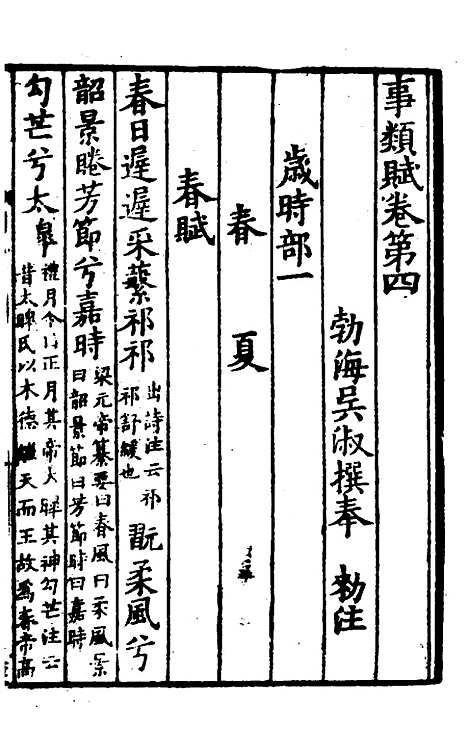 事類賦卷第四
勃海吳淑撰奉　勑注
歲時部一
春　夏
春賦
春日遲遲采蘩祁祁出詩注云祁祁舒緩也翫柔風兮
韶景睠芳節兮嘉時梁元帝纂要曰春風曰柔風景曰韶景節曰芳節時曰嘉時
勾芒兮太皞禮月令曰正月其帝大皞其神勾芒注云昔太皥氏以木德繼天而王故爲春帝